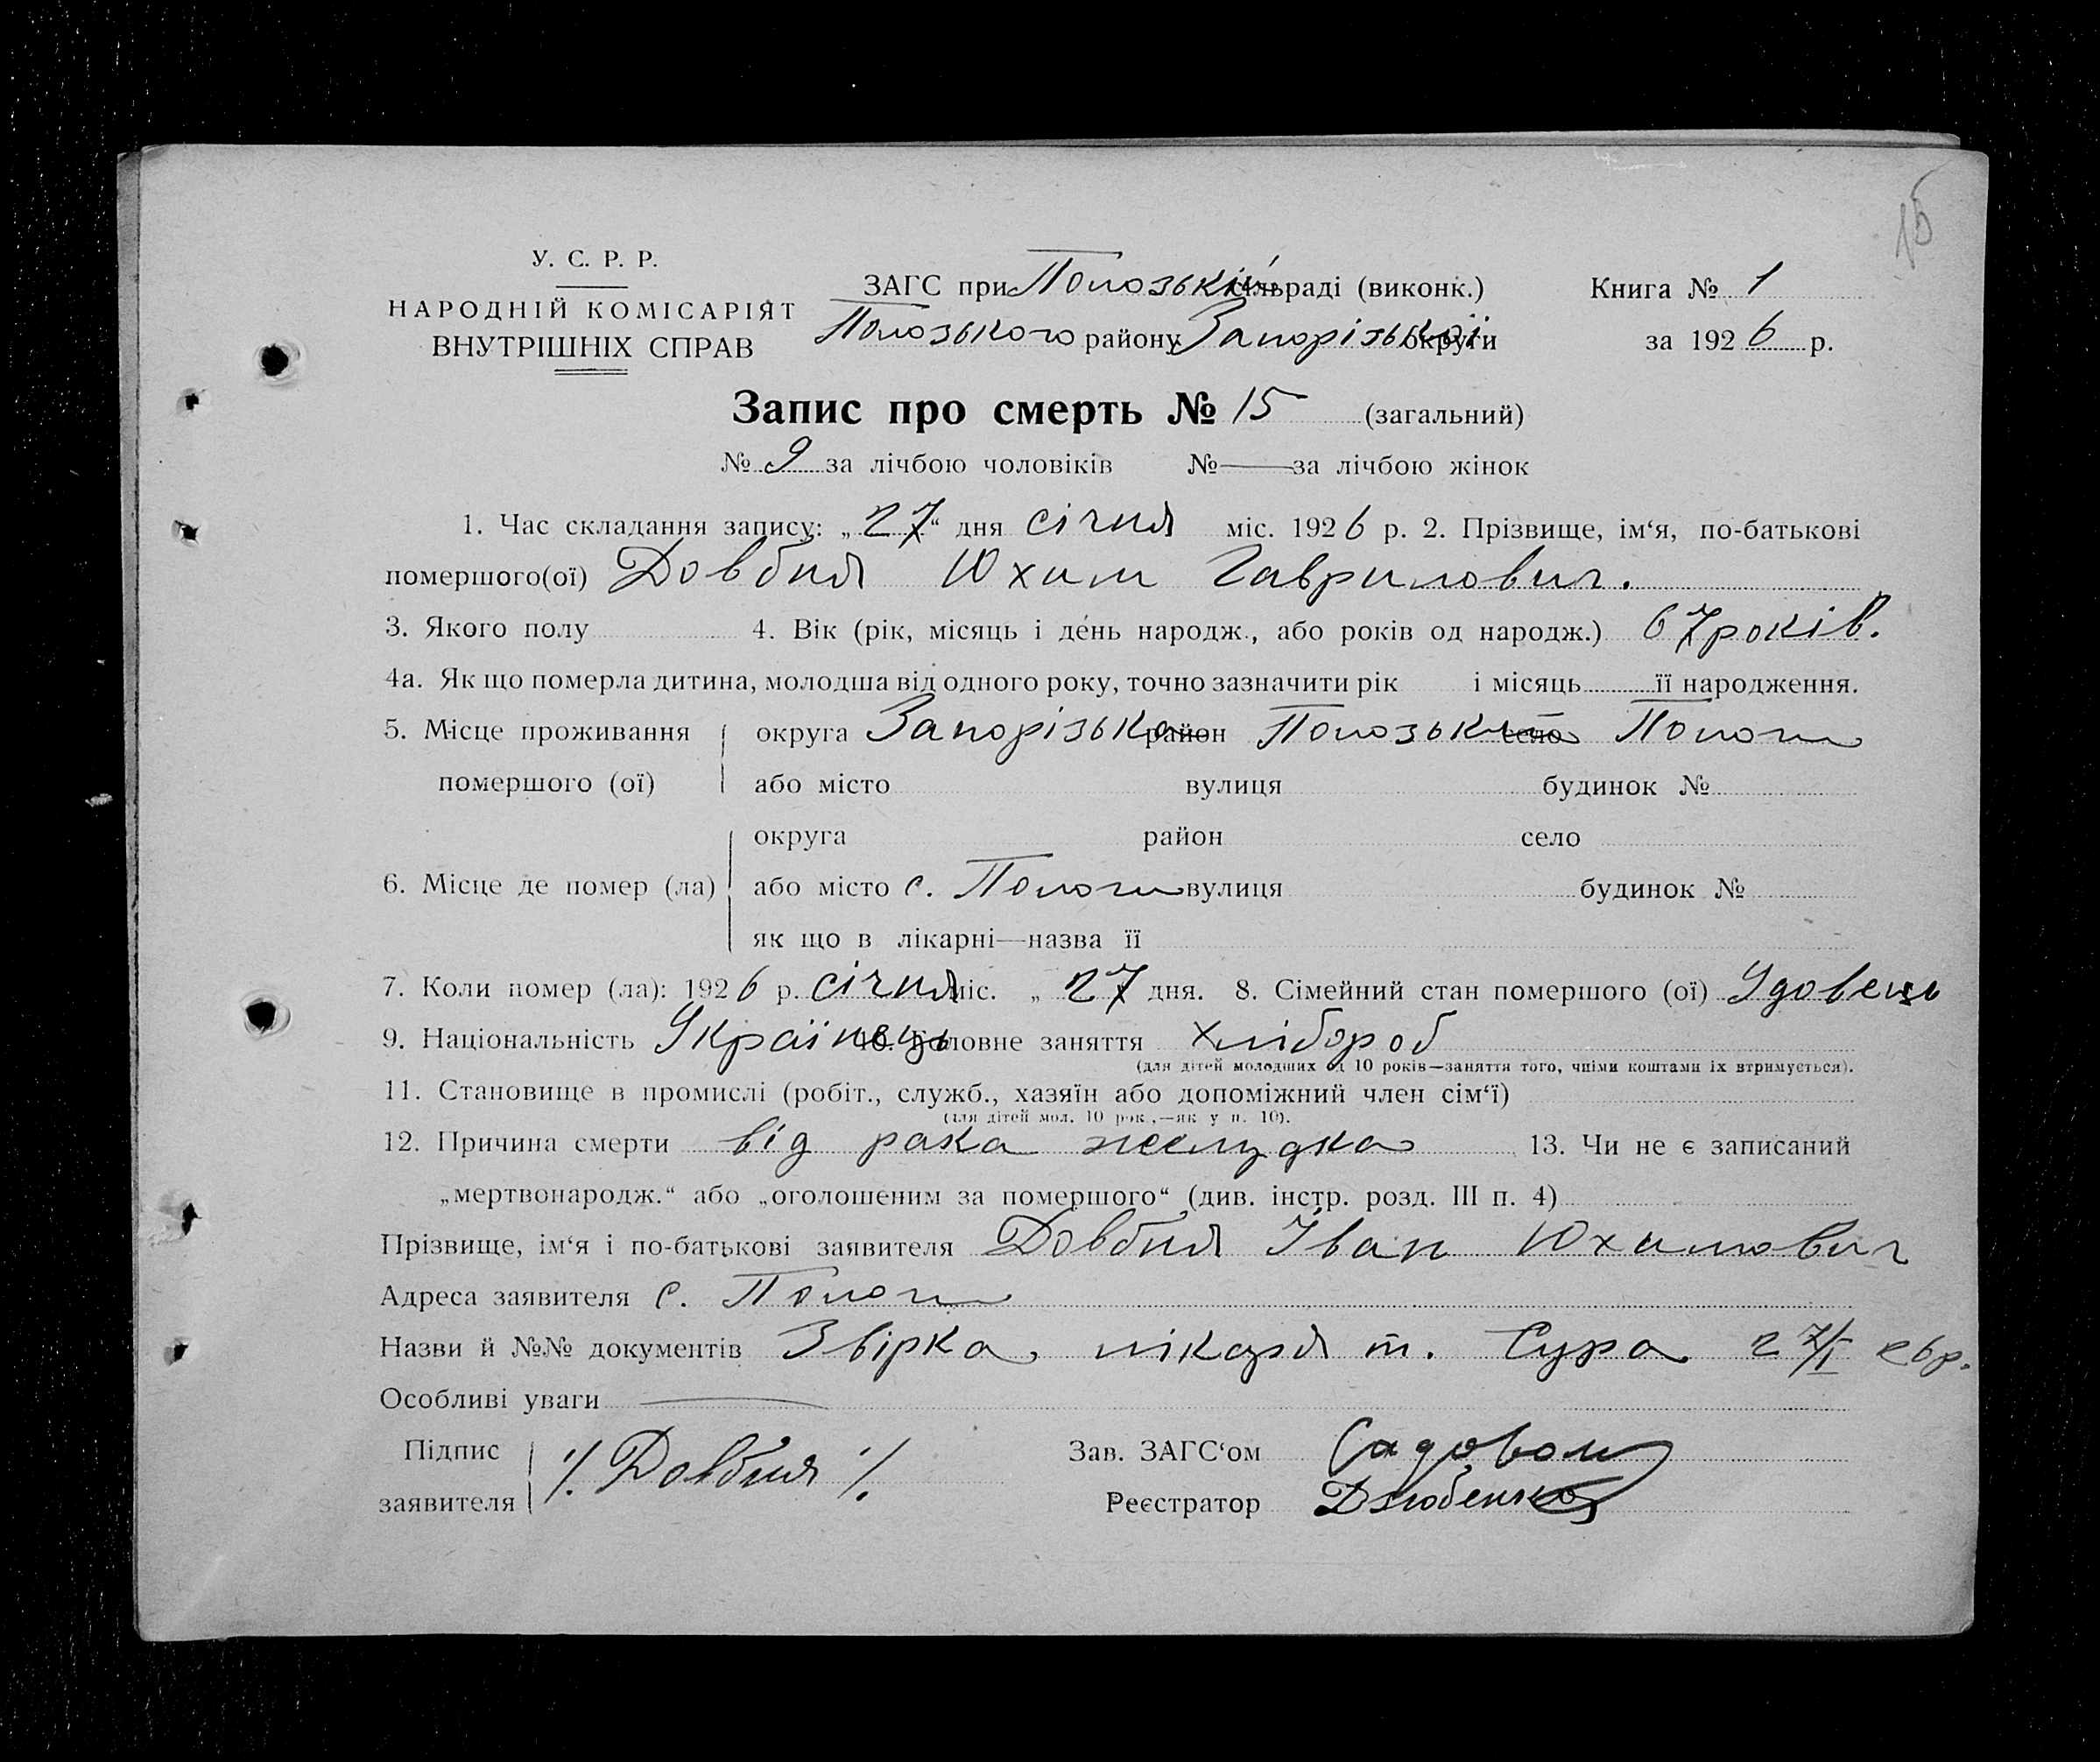 15
У. С. Р. Р.
НАРОДНІЙ КОМІСАРІЯТ
ВНУТРІШНІХ СПРАВ
ЗАГС при Пологзькій сільраді (виконк.)
Пологзького району Запорізької округи
Книга № 1
за 1926 р.
Запис про смерть № 15 (загальний)
№ 9 за лічбою чоловіків № — за лічбою жінок
1. Час складання запису: „27“ дня січня міс. 1926 р. 2. Прізвище, ім‘я, по-батькові
помершого(ої) Довбня Юхим Гаврилович.
3. Якого полу 4. Вік (рік, місяць і день народж., або років од народж.) 67 років.
4а. Як що померла дитина, молодша від одного року, точно зазначити рік і місяць її народження.
5. Місце проживання округа Запорізька район Пологзький село Пологи
помершого (ої) або місто вулиця будинок №
округа район село
6. Місце де помер (ла) або місто с. Пологи вулиця будинок №
як що в лікарні—назва її
7. Коли помер (ла): 1926 р. січня міс. „27 дня. 8. Сімейний стан помершого (ої) Удовець
9. Національність Українець 10. Головне заняття Хлібороб
(для дітей молодших од 10 років—заняття того, чиїми коштами їх втримується).
11. Становище в промислі (робіт., служб., хазяїн або допоміжний член сім‘ї)
(для дітей мол. 10 рок.,—як у п. 10).
12. Причина смерти від рака желудка 13. Чи не є записаний
„мертвонародж.“ або „оголошеним за помершого“ (див. інстр. розд. III п. 4)
Прізвище, ім‘я і по-батькові заявителя Довбня Іван Юхимович
Адреса заявителя с. Пологи
Назви й №№ документів Звірка лікаря т. Сура 27/I 26р.
Особливі уваги —
Підпис
заявителя /. Довбня /.
Зав. ЗАГС‘ом Садовой
Реєстратор Дзюбенко